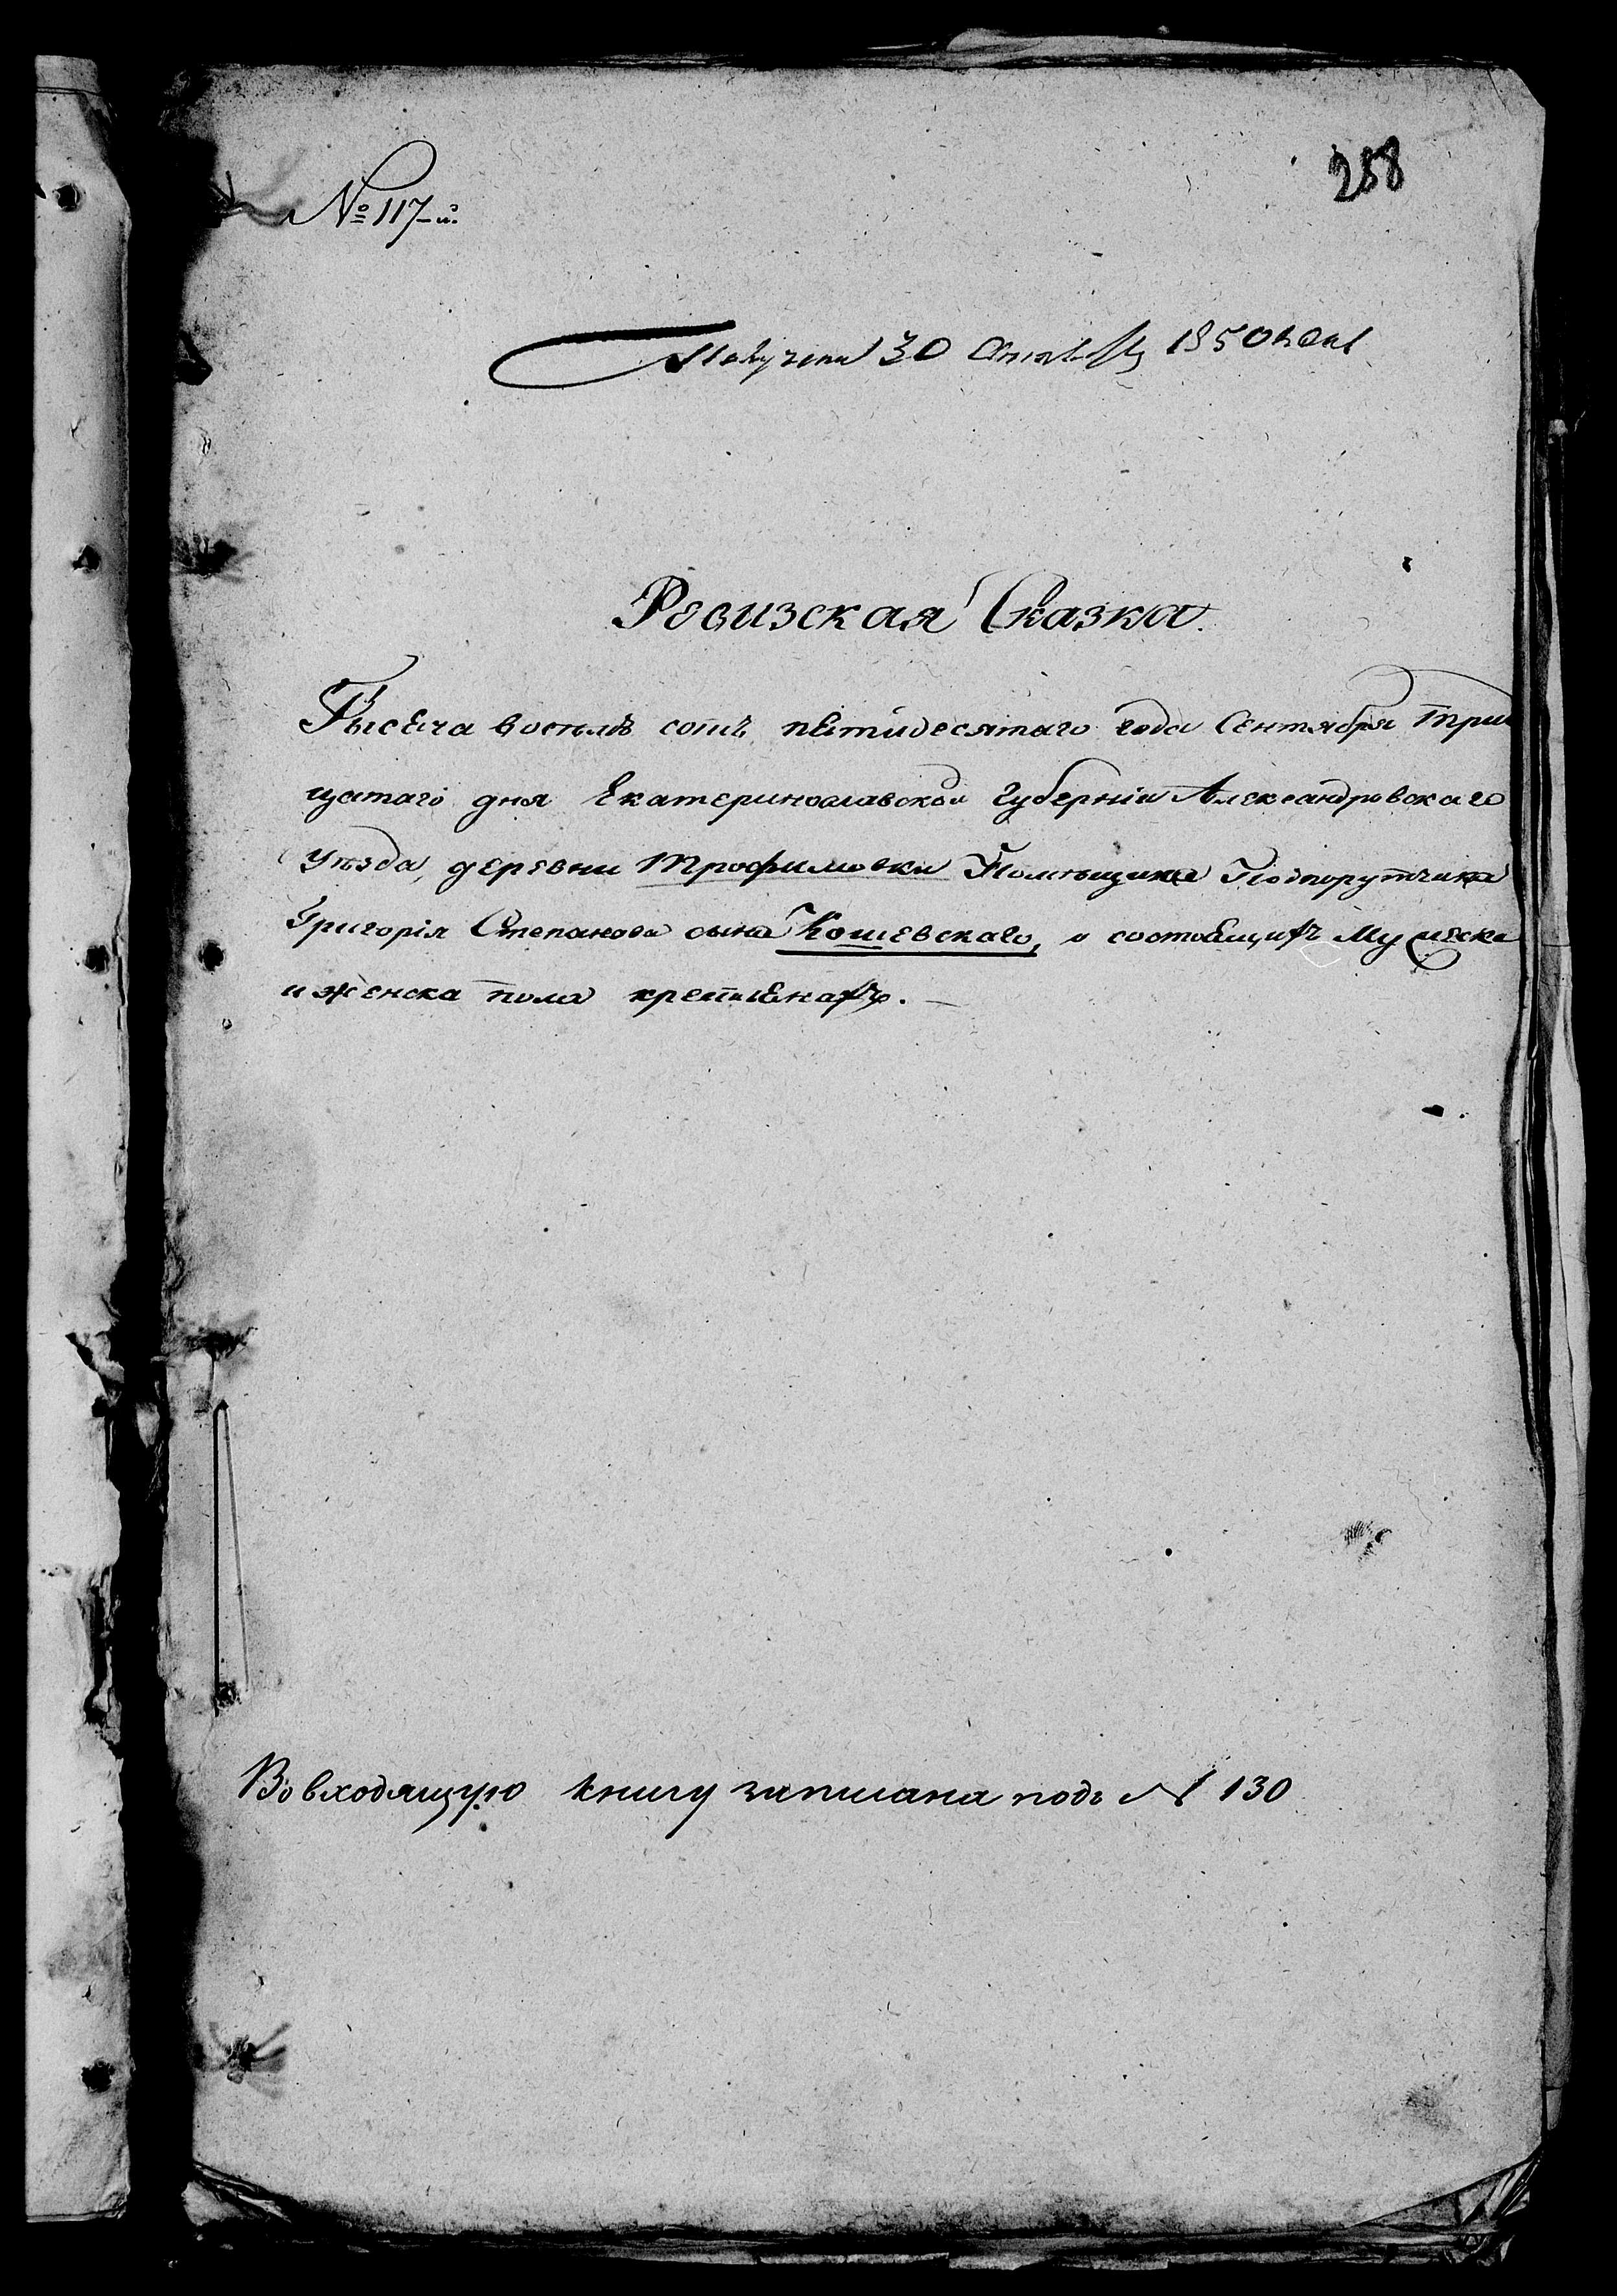 № 117-й.
288
Получена 30 Октября 1850 года
Ревизская Сказка.
Тысеча восемь сотъ петидесятаго года Сентября трид
цатаго дня Екатеринославской Губерніи Александровскаго
Уѣзда, деревни Трофимовки Помѣщика Подпорутчика
Григорія Степанова сына Кошевскаго, о состоящихъ Мужеска
и женска пола крестьянахъ.
Во входящую книгу записана подъ № 130